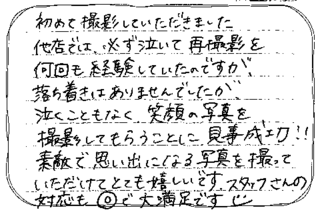 初めて撮影していただきました
他店では、必ず泣いて再撮影を
何回も経験していたのですが、
落ち着きはありませんでしたが
泣くこともなく、笑顔の写真を
撮影してもらうことに見事成功!!
素敵で思い出になる写真を撮って
いただけてとても嬉しいです。スタッフさんの
対応も◎で大満足です